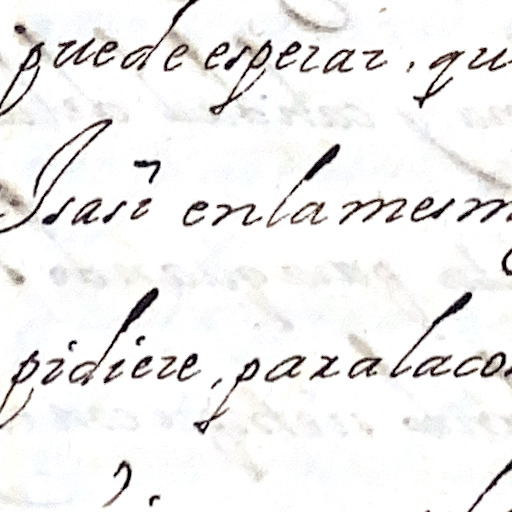 puede esperar, qu
Isasi en la mesm
pidiere, para la co